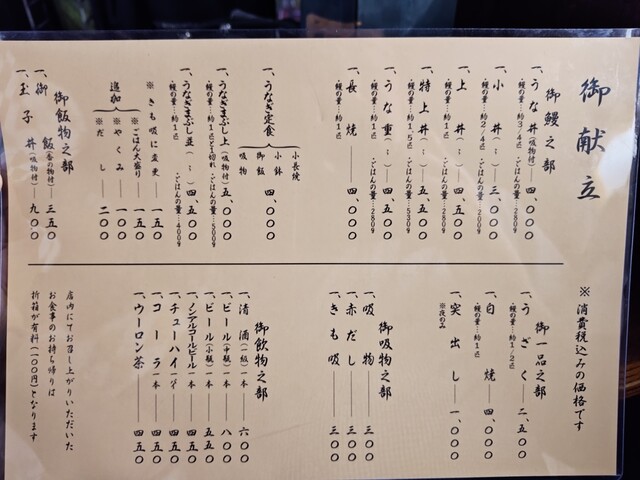 御献立
※消費税込みの価格です
御鰻之部
一、うな丼(吸物付)―四、〇〇〇
・鰻の量…約3/4匹 ・ごはんの量…280g
一、小丼(〃)―三、〇〇〇
・鰻の量…約2/4匹 ・ごはんの量…200g
一、上丼(〃)―四、五〇〇
・鰻の量…約1匹 ・ごはんの量…280g
一、特上丼(〃)―五、五〇〇
・鰻の量…約1.5匹 ・ごはんの量…530g
一、うな重(〃)―四、五〇〇
・鰻の量…約1匹 ・ごはんの量…280g
一、長焼―四、〇〇〇
・鰻の量…約1匹
一、うなぎ定食
小長焼
小鉢
御飯
吸物
四、〇〇〇
一、うなぎまぶし上(吸物付)五、〇〇〇
・鰻の量…約1匹と1切れ ・ごはんの量…500g
一、うなぎまぶし並(〃)四、五〇〇
・鰻の量…約1匹 ・ごはんの量…400g
※きも吸に変更―一五〇
追加
※ごはん大盛り―一五〇
※やくみ―一〇〇
※だし―二〇〇
御飯物之部
一、御飯(香の物付)―三五〇
一、玉子丼(吸物付)―九〇〇
御一品之部
一、うざく―二、五〇〇
・鰻の量…約1/2匹
一、白焼―四、〇〇〇
・鰻の量…約1匹
一、突出し―一、〇〇〇
※夜のみ
御吸物之部
一、吸物―三〇〇
一、赤だし―三〇〇
一、きも吸―三〇〇
御飲物之部
一、清酒(二級)一本―六〇〇
一、ビール(中瓶)一本―八〇〇
一、ビール(小瓶)一本―五五〇
一、ノンアルコールビール一本―四五〇
一、チューハイ一パイ―四五〇
一、コーラ一本―四五〇
一、ウーロン茶―四五〇
店内にてお召し上がりいただいた
お食事のお持ち帰りは
折箱が有料(一〇〇円)となります